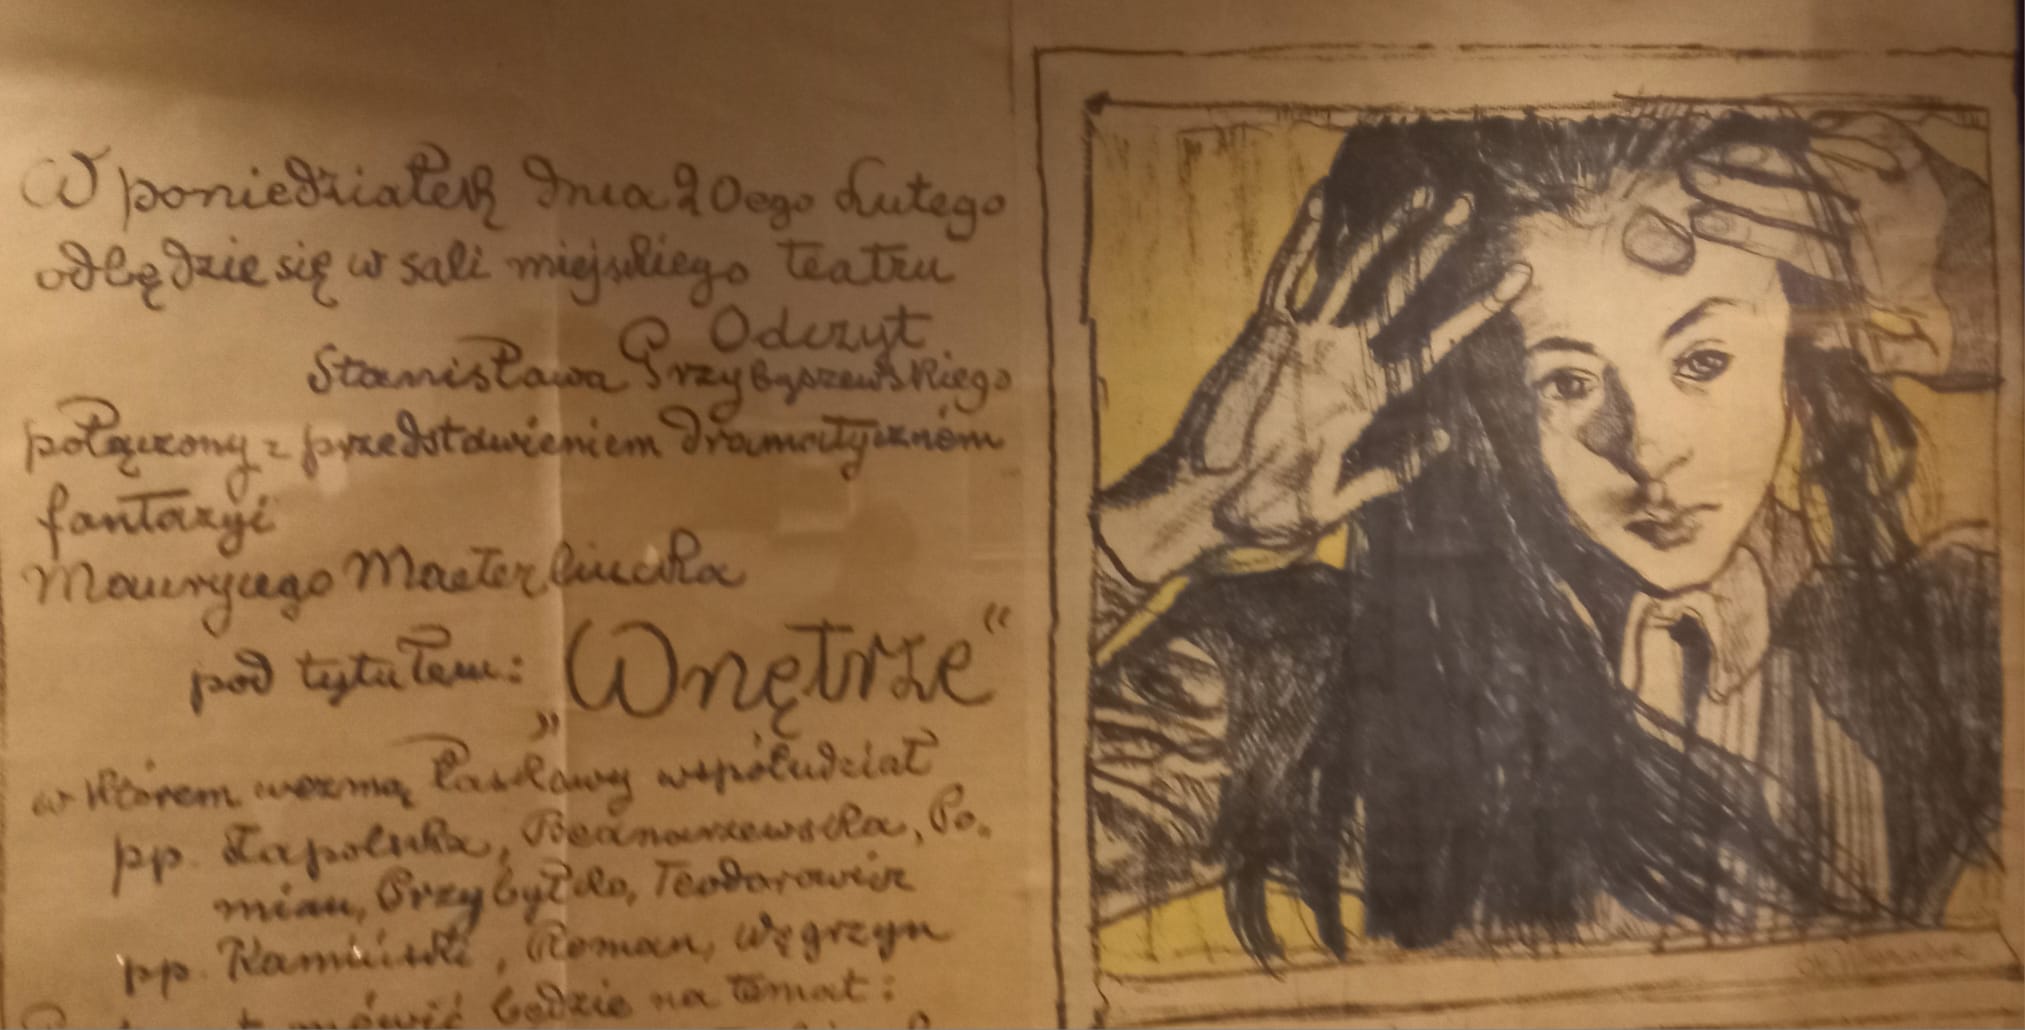 W poniedziałek dnia 20ego Lutego
odbędzie się w sali miejskiego teatru
Odczyt
Stanisława Przybyszewskiego
połączony z przedstawieniem dramatycznem
fantazyi
Maurycego Maeterlincka
pod tytułem: „Wnętrze“
w którem wezmą łaskawy współudział
pp. Zapolska, Bednarzewska, Po-
mian, Przybyłko, Teodorowicz
pp. Kamiński, Roman, Węgrzyn
mówić będzie na temat: